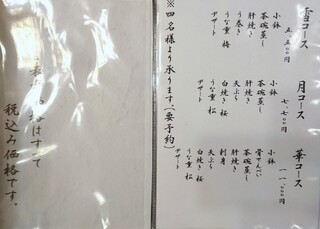 雪コース
五、五〇〇円
小鉢
茶碗蒸し
肝焼き
う巻き
うな重 梅
デザート
月コース
七、七〇〇円
小鉢
茶碗蒸し
肝焼き
天ぷら
白焼き 桜
うな重 松
デザート
華コース
一一、〇〇〇円
小鉢
骨せんべい
茶碗蒸し
肝焼き
刺身
天ぷら
白焼き 桜
うな重 松
デザート
※四名様より承ります(要予約)
表示価格はすべて
税込み価格です。